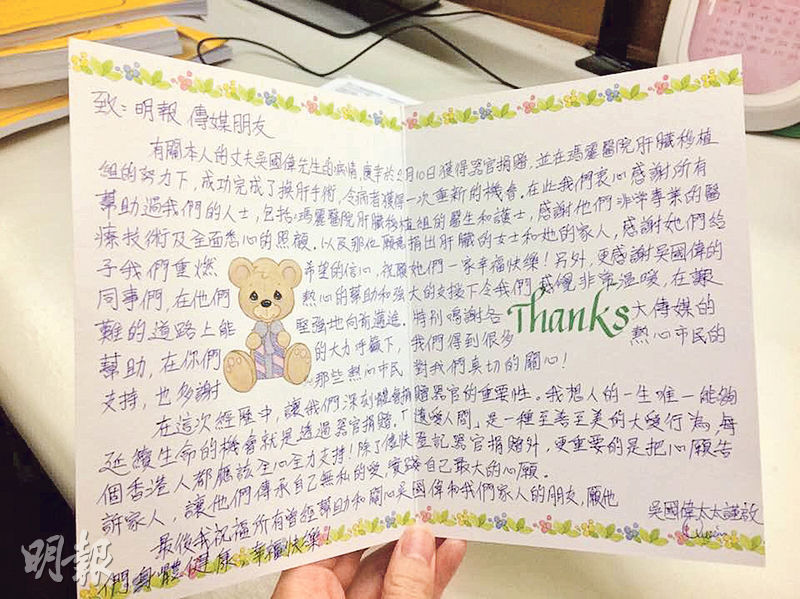 致：明報 傳媒朋友
有關本人的丈夫吳國偉先生的病情，慶幸於2月10日獲得器官捐贈，並在瑪麗醫院肝臟移植
組的努力下，成功完成了換肝手術，令病者獲得一次重新的機會。在此我們衷心感謝所有
幫助過我們的人士，包括：瑪麗醫院肝臟移植組的醫生和護士，感謝他們非常專業的醫
療技術及全面悉心的照顧。以及那位願意捐出肝臟的女士和她的家人，感謝她們給
予我們重燃希望的信心，祝願她們一家幸福快樂！另外，更感謝吳國偉的
同事們，在他們熱心的幫助和強大的支援下令我們感覺非常溫暖，在艱
難的道路上能堅強地向前邁進。特別鳴謝各大傳媒的
Thanks
幫助，在你們的大力呼籲下，我們得到很多熱心市民的
支持，也多謝那些熱心市民對我們真切的關心！
在這次經歷中，讓我們深刻體會捐贈器官的重要性。我想人的一生唯一能夠
延續生命的機會就是透過器官捐贈。「遺愛人間」是一種至善至美的大愛行為，每
個香港人都應該全心全力支持！除了儘快登記器官捐贈外，更重要的是把心願告
訴家人，讓他們傳承自己無私的愛，實踐自己最大的心願。
最後我祝福所有曾經幫助和關心吳國偉和我們家人的朋友，願他
們身體健康，幸福快樂！
吳國偉太太謹啟
明報